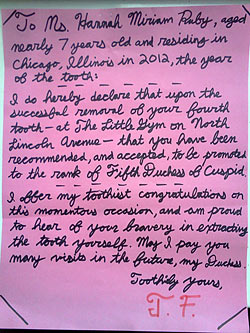 To Ms. Hannah Miriam Ruby, aged
nearly 7 years old and residing in
Chicago, Illinois in 2012, the year
of the tooth:
I do hereby declare that upon the
successful removal of your fourth
tooth – at The Little Gym on North
Lincoln Avenue – that you have been
recommended, and accepted, to be promoted
to the rank of Fifth Duchess of Cuspid.
I offer my toothiest congratulations on
this momentous occasion, and am proud
to hear of your bravery in extracting
the tooth yourself. May I pay you
many visits in the future, my Duchess.
Toothily yours,
T. F.